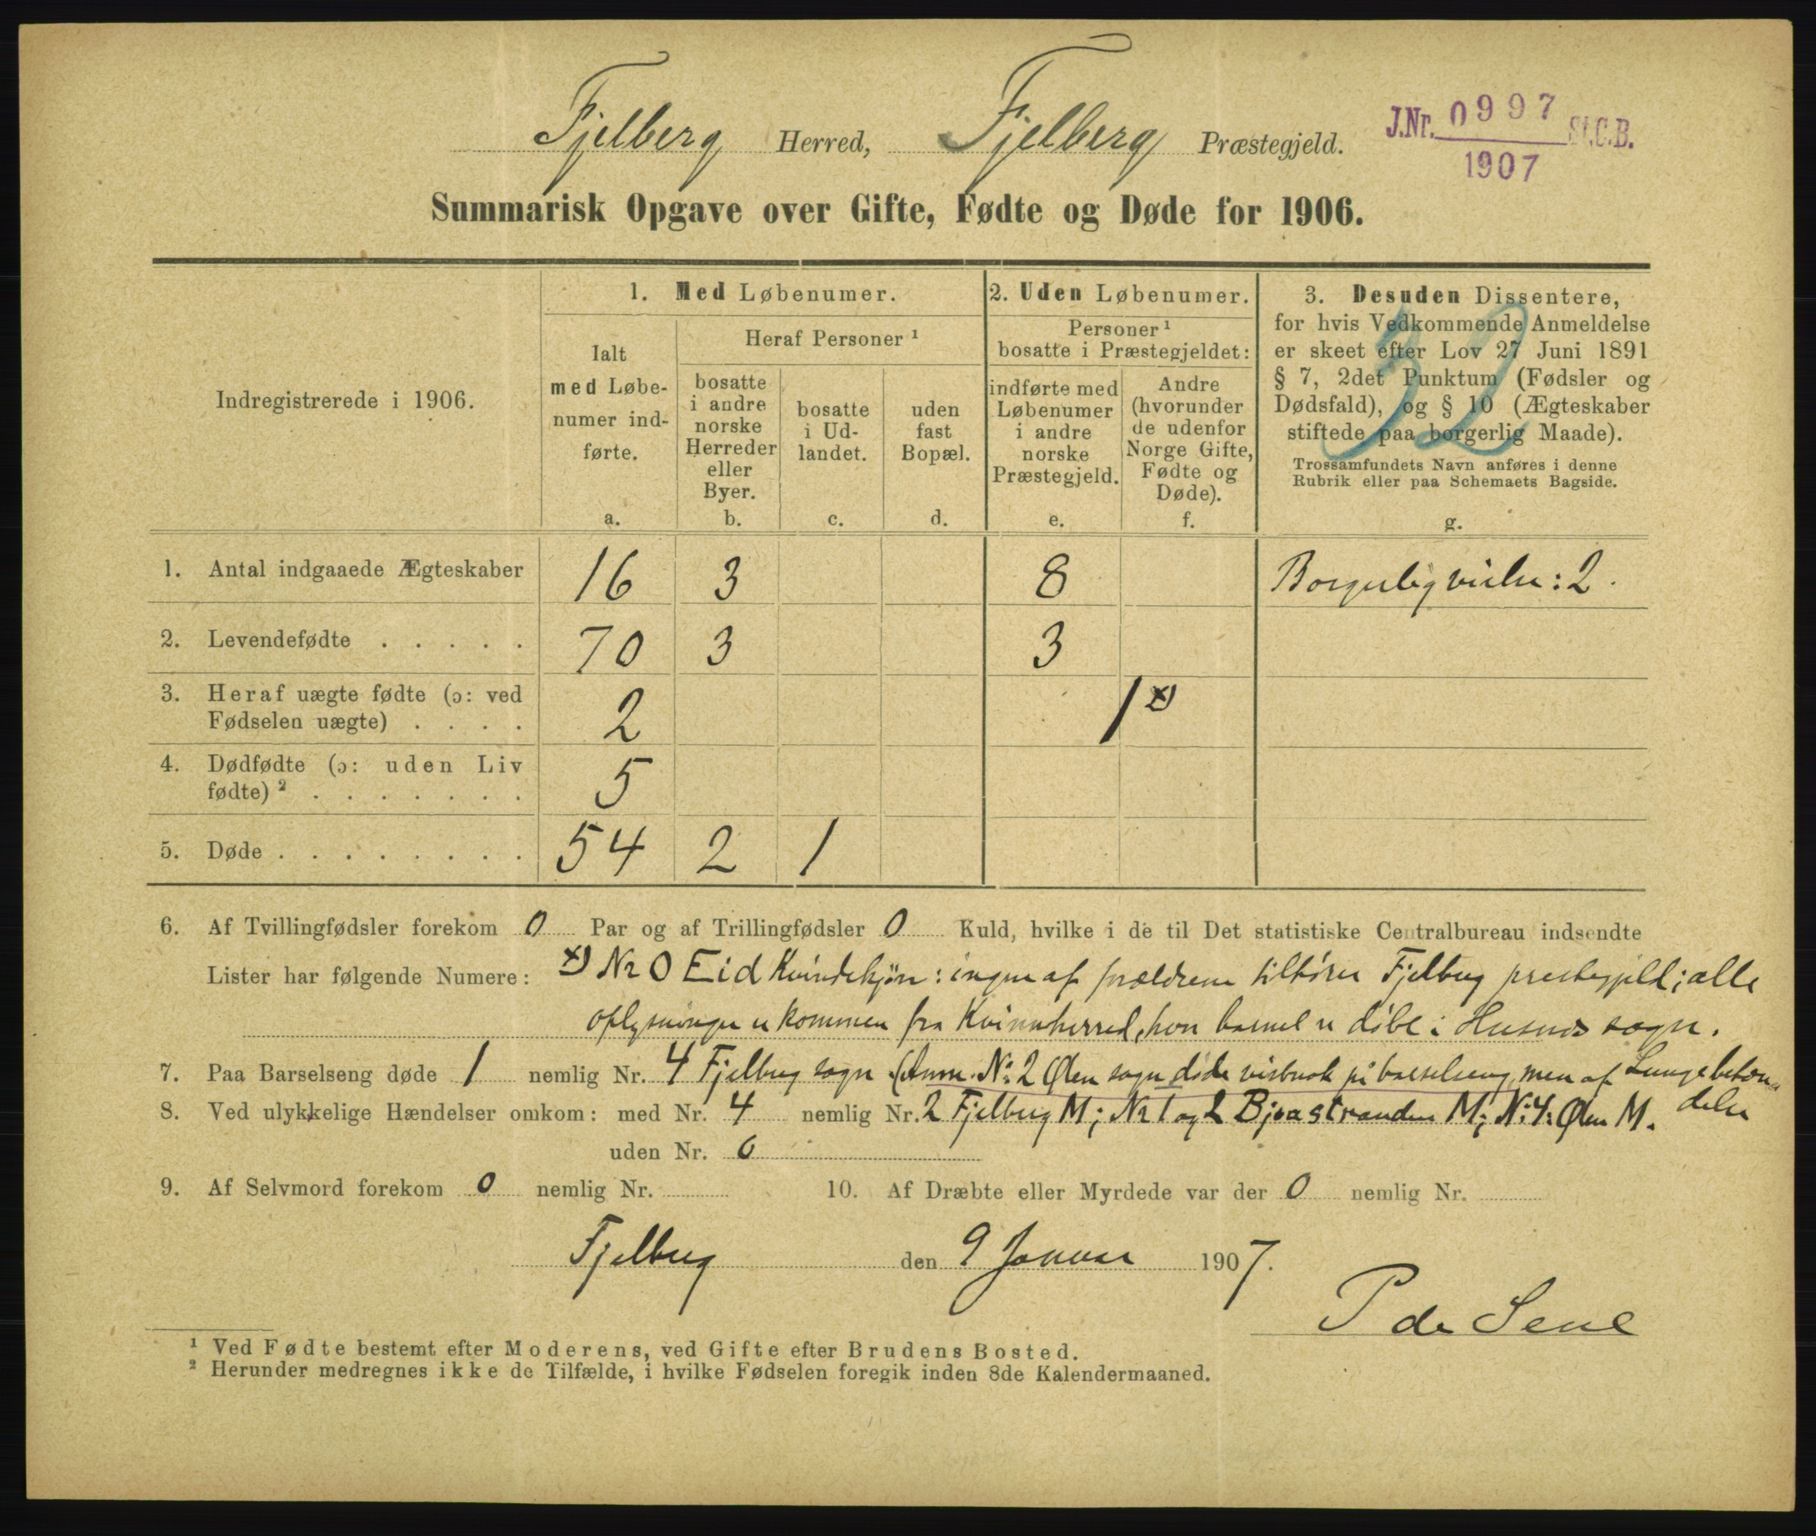 Fjelberg Herred, Fjelberg Præstegjeld.
J.Nr. 0997 St.C.B.
1907
Summarisk Opgave over Gifte, Fødte og Døde for 1906.
Indregistrerede i 1906.
1. Med Løbenumer.
Ialt
med Løbe-
numer ind-
førte.
a.
Heraf Personer ¹
bosatte
i andre
norske
Herreder
eller
Byer.
b.
bosatte
i Ud-
landet.
c.
uden
fast
Bopæl.
d.
2. Uden Løbenumer.
Personer ¹
bosatte i Præstegjeldet:
indførte med
Løbenumer
i andre
norske
Præstegjeld.
e.
Andre
(hvorunder
de udenfor
Norge Gifte,
Fødte og
Døde).
f.
3. Desuden Dissentere,
for hvis Vedkommende Anmeldelse
er skeet efter Lov 27 Juni 1891
§ 7, 2det Punktum (Fødsler og
Dødsfald), og § 10 (Ægteskaber
stiftede paa borgerlig Maade).
Trossamfundets Navn anføres i denne
Rubrik eller paa Schemaets Bagside.
g.
32
1. Antal indgaaede Ægteskaber 16 3 8 Borgerlig vielse: 2.
2. Levendefødte . . . . . 70 3 3
3. Heraf uægte fødte (ɔ: ved
Fødselen uægte) . . . . 2 1 x)
4. Dødfødte (ɔ: uden Liv
fødte) ² . . . . . . . 5
5. Døde . . . . . . . . 54 2 1
6. Af Tvillingfødsler forekom 0 Par og af Trillingfødsler 0 Kuld, hvilke i de til Det statistiske Centralbureau indsendte
Lister har følgende Numere: x) Nr 0 Eid Kvindekjøn: ingen af forældrene tilhører Fjelberg prestegjeld; alle
oplysninger er kommen fra Kvinnherred, hvor barnet er døbt i Husnes sogn.
7. Paa Barselseng døde 1 nemlig Nr. 4 Fjelberg sogn (Anm. Nr: 2 Ølen sogn døde vistnok på barselseng, men af Lungebetæn-
delse
8. Ved ulykkelige Hændelser omkom: med Nr. 4 nemlig Nr. 2 Fjelberg M; Nr 1 og 2 Bjoastranden M; Nr: 4: Ølen M.
uden Nr. 0
9. Af Selvmord forekom 0 nemlig Nr. 10. Af Dræbte eller Myrdede var der 0 nemlig Nr.
Fjelberg den 9 Januar 1907.
P de Seue
¹ Ved Fødte bestemt efter Moderens, ved Gifte efter Brudens Bosted.
² Herunder medregnes ikke de Tilfælde, i hvilke Fødselen foregik inden 8de Kalendermaaned.